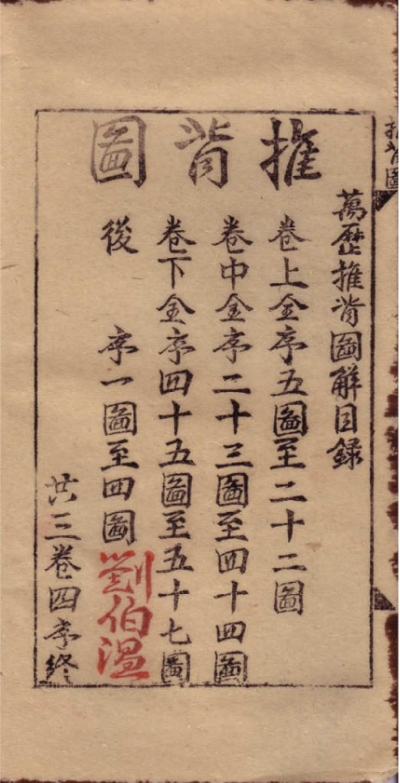 推背圖
萬歷推背圖解目錄
卷上金序五圖至二十二圖
卷中金序二十三圖至四十四圖
卷下金序四十五圖至五十七圖
後序一圖至四圖
劉伯溫
共三卷四序終
推背圖